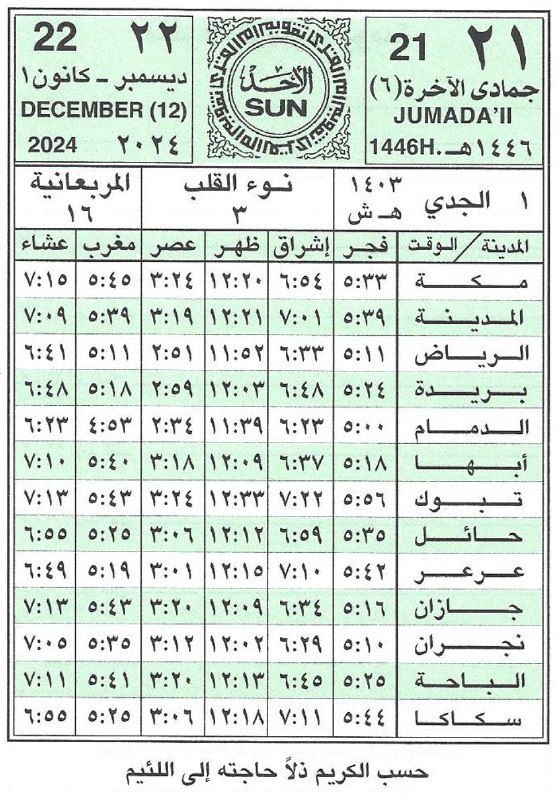 22 ٢٢
ديسمبر - كانون١
DECEMBER (12)
2024 ٢٠٢٤
الأحد
SUN
21 ٢١
جمادى الآخرة (٦)
JUMADA'II
1446H. ١٤٤٦هـ
١ الجدي ١٤٠٣ هـ ش
نوء القلب ٣
المربعانية ١٦
المدينة / الوقت فجر إشراق ظهر عصر مغرب عشاء
مكة ٥:٣٣ ٦:٥٤ ١٢:٢٠ ٣:٢٤ ٥:٤٥ ٧:١٥
المدينة ٥:٣٩ ٧:٠١ ١٢:٢١ ٣:١٩ ٥:٣٩ ٧:٠٩
الرياض ٥:١١ ٦:٣٣ ١١:٥٢ ٢:٥١ ٥:١١ ٦:٤١
بريدة ٥:٢٤ ٦:٤٨ ١٢:٠٣ ٢:٥٩ ٥:١٨ ٦:٤٨
الدمام ٥:٠٠ ٦:٢٣ ١١:٣٩ ٢:٣٤ ٤:٥٣ ٦:٢٣
أبها ٥:١٨ ٦:٣٧ ١٢:٠٩ ٣:١٨ ٥:٤٠ ٧:١٠
تبوك ٥:٥٦ ٧:٢٢ ١٢:٣٣ ٣:٢٤ ٥:٤٣ ٧:١٣
حائل ٥:٣٥ ٦:٥٩ ١٢:١٢ ٣:٠٦ ٥:٢٥ ٦:٥٥
عرعر ٥:٤٢ ٧:١٠ ١٢:١٥ ٣:٠١ ٥:١٩ ٦:٤٩
جازان ٥:١٦ ٦:٣٤ ١٢:٠٩ ٣:٢٠ ٥:٤٣ ٧:١٣
نجران ٥:١٠ ٦:٢٩ ١٢:٠٢ ٣:١٢ ٥:٣٥ ٧:٠٥
الباحة ٥:٢٥ ٦:٤٥ ١٢:١٣ ٣:٢٠ ٥:٤١ ٧:١١
سكاكا ٥:٤٤ ٧:١١ ١٢:١٨ ٣:٠٦ ٥:٢٥ ٦:٥٥
حسب الكريم ذلاً حاجته إلى اللئيم